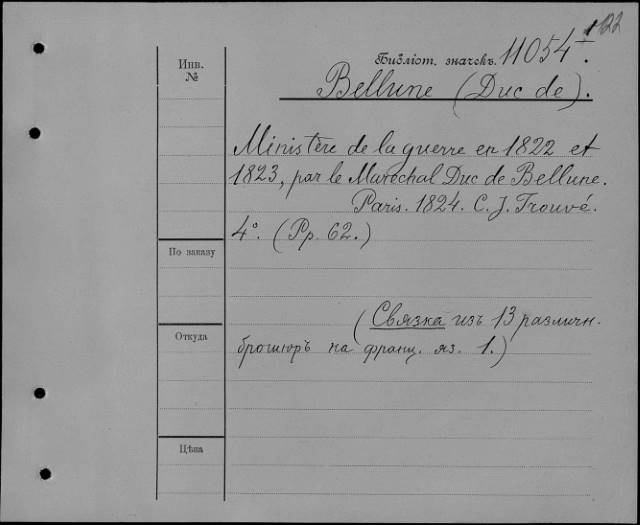 122
Инв.
№
Библіот. значекъ. 11054 I.
Bellune (Duc de).
Ministère de la guerre en 1822 et
1823, par le Maréchal Duc de Bellune.
Paris. 1824. C. J. Trouvé.
4°. (Pp. 62.)
По заказу
(Связка изъ 13 различн.
Откуда
брошюръ на франц. яз. 1.)
Цѣна